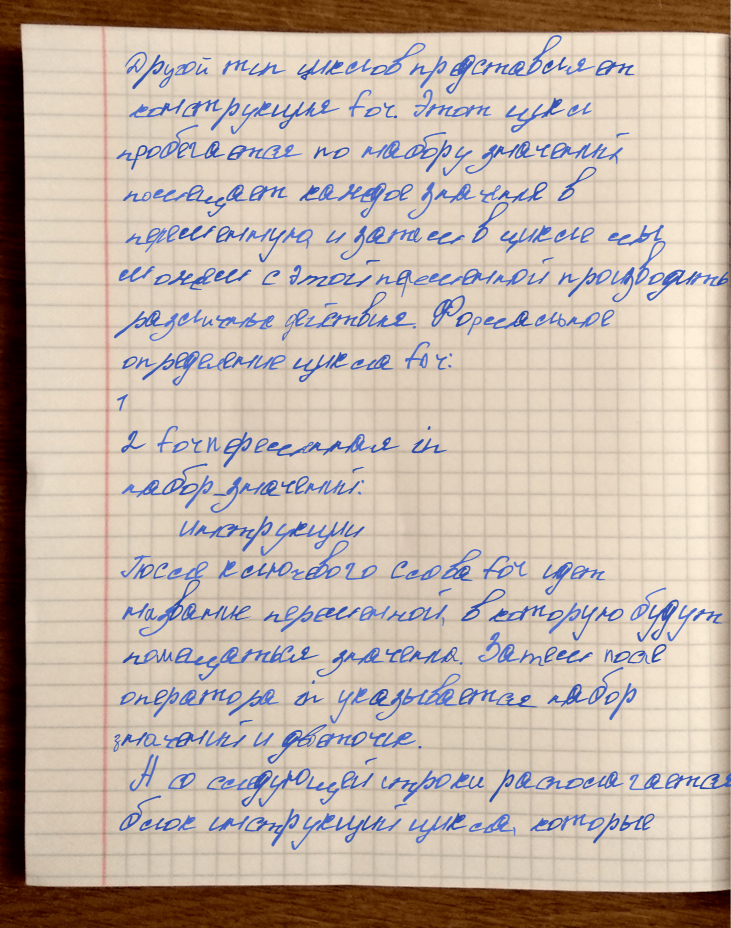 Другой тип циклов представляет
конструкция for. Этот цикл
пробегается по набору значений,
помещает каждое значение в
переменную, и затем в цикле мы
можем с этой переменной производить
различные действия. Формальное
определение цикла for:
1
2 for переменная in
набор_значений:
инструкции
После ключевого слова for идет
название переменной, в которую будут
помещаться значения. Затем после
оператора in указывается набор
значений и двоеточие.
А со следующей строки располагается
блок инструкций цикла, которые